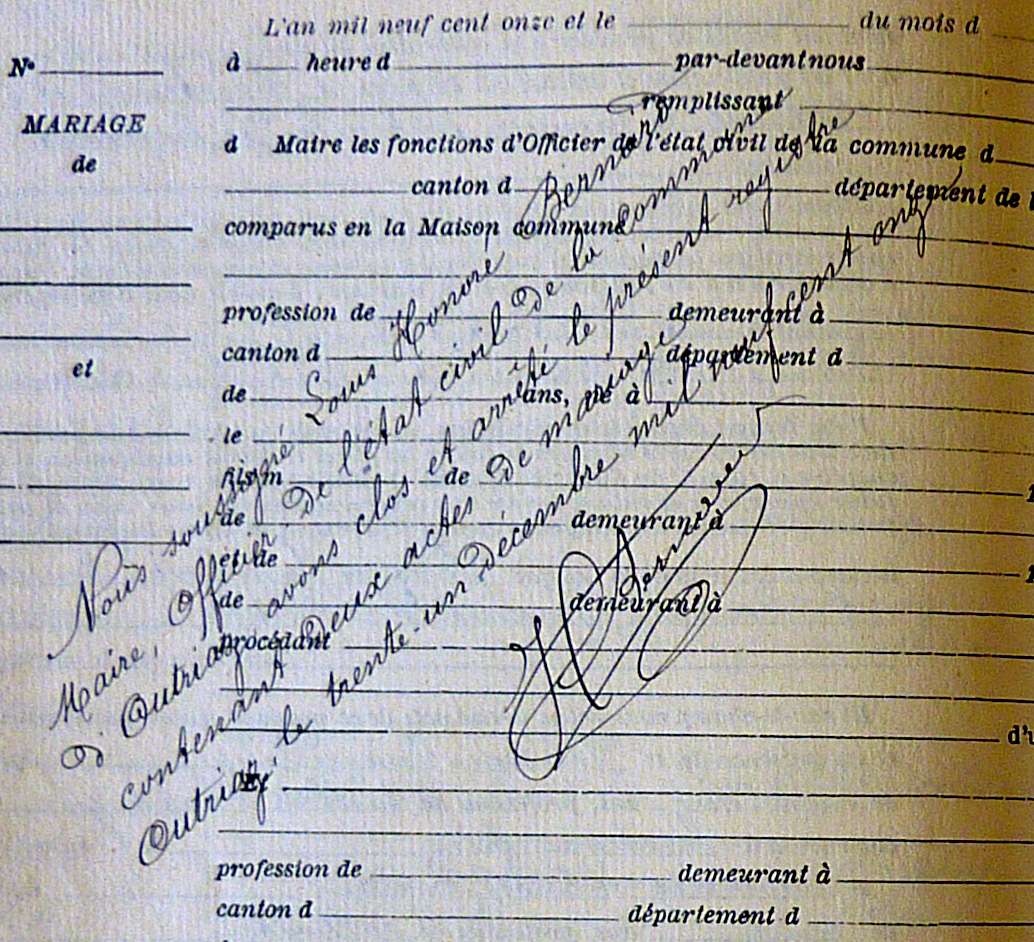 L'an mil neuf cent onze et le du mois d
N° à heure d par-devant nous
remplissant
MARIAGE
de
d Maire les fonctions d'Officier de l'état civil de la commune d
canton d département de l
comparus en la Maison commune
profession de demeurant à
canton d département d
et
de ans, né à
le
fils m de
de demeurant à
et de
de demeurant à
procédant
d'u
Et
profession de demeurant à
canton d département d
Nous soussigné Louis Honoré Bernard
Maire, Officier de l'état civil de la commune
d'Outriaz avons clos et arrêté le présent registre
contenant deux actes de mariage
Outriaz le trente-un décembre mil neuf cent onze